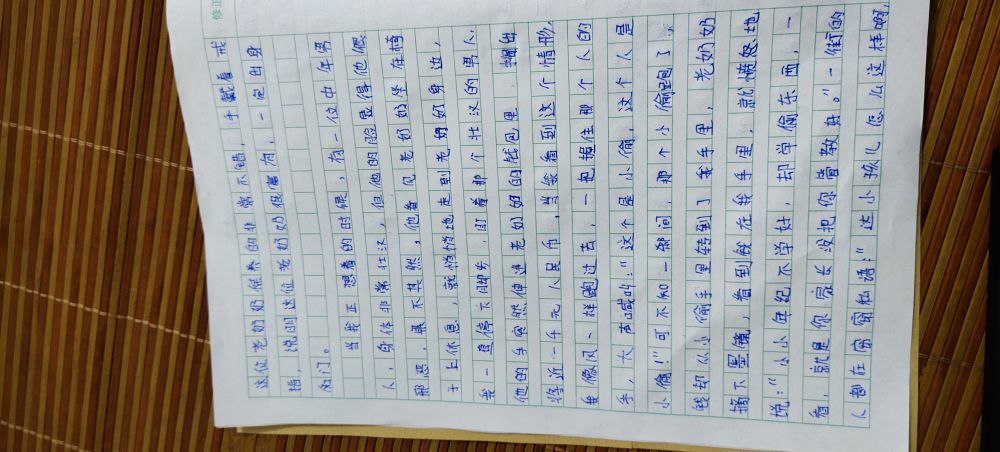 修正
这位老奶奶保养的非常不错，手戴着戒
指，说明这位老奶奶很富有，一定出身
名门。
当我正想着的时候，有一位中年男
人，身体非常壮汉，但他的脸显得他很
邪恶，果不其然，他看见老奶奶坐在椅
子上休息，就悄悄地走到老奶奶身边，
我一直停下脚步，盯着那个壮汉的男人，
他的手突然伸进老奶奶的钱包里，掏出
将近一千元人民币，当我看到这个情形，
我像风一样跑过去，一把握住那个人的
手，大声喊叫：“这个是小偷，这个人是
小偷！”可不知一瞬间，那个小偷跑了，
钱却从小偷手里转到了我手里，老奶奶
摘下墨镜，看到钱在我手里，就愤怒地
说：“小小年纪不学好，却学偷东西，一
看，就是你家长没把你管教好。”一街的
人都在窃窃私语：“这小孩儿怎么这样啊，